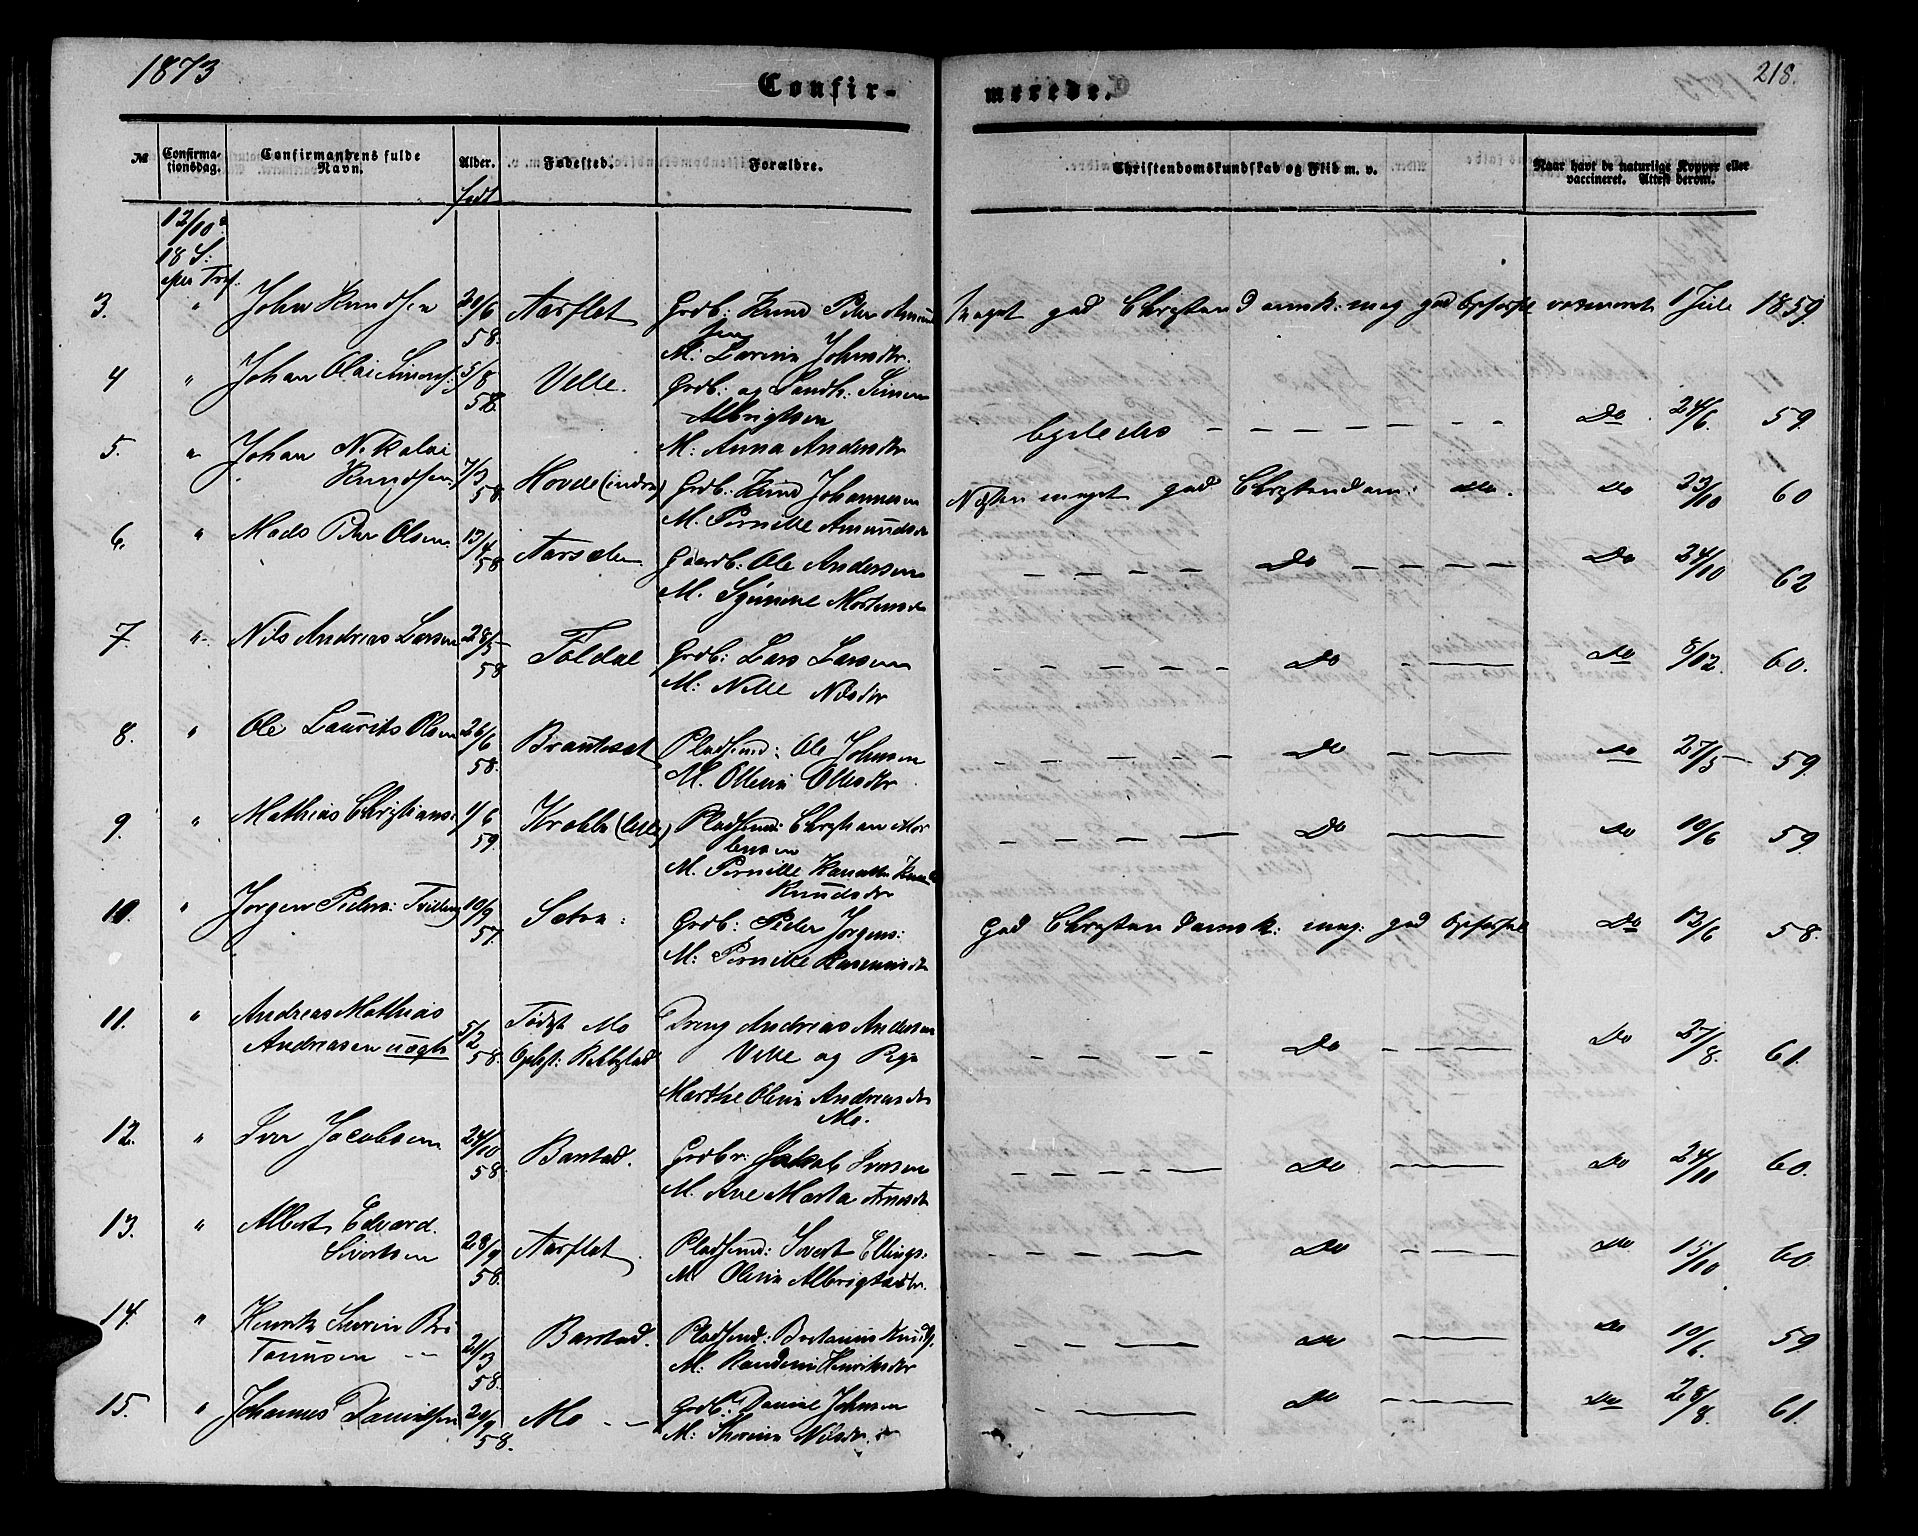 1873
218.
Confir-
merede.
№
Confirma-
tionsdag.
Confirmandens fulde
Navn.
Alder.
født
Fødested.
Forældre.
Christendomskundskab og Flid m. v.
Naar havt de naturlige Kopper eller
vaccineret. Attest derom.
12/10
18 S.
efter Tref.
3. " John Knudsen 29/6 58. Aarflot Grdb: Knud Peter Amund
sen
M: Larsine Johnsdtr.
Meget god Christendomsk: meg god Opførsel vaccineret 1 Juli 1859.
4 " Johan Olai Simons: 5/8 58. Velle. Grdb: og Landh: Simon
Albrigtsen
M: Anna Andersdtr
ligeledes Do 24/6. 59.
5. " Johan Nikolai
Knudsen 7/3 58 Hovde (indre) Grdb: Knud Johannesen
M. Pernille Amundsdr
Næsten meget god Christendom: Do 23/10 60
6. " Mads Peter Olsen 13/4 58 Aarsæter Gaardb: Ole Andersen
M. Mortensdr
Do Do 24/10 62
7. " Nils Andreas Larsen 28/5 58 Foldal Grdb: Lars Larsen
M: Nille Nilsdtr
Do Do 8/12. 60.
8. " Ole Laurits Olsen 26/6 58. Brauteset Pladsmd: Ole Johnsen
M. Oline Olesdtr
Do Do 27/5 59.
9. " Mathias Christians: 1/6 59. Krabbe (lille) Pladsmd: Christian Mor
tensen
M. Pernille
Knudsdr
Do Do 10/6 59.
10. " Jørgen Peders: Tvilling 10/9 57. Sætre: Grdb: Peder Jørgens:
M: Pernille Rasmusdtr
God Christendomsk: meg: god Opførsel Do 13/6 58.
11. " Andreas Mathias
Andreasen uægte 5/2 58. Født Mo
Opfost: Dreng Andreas Andersen
Velle og Pige
Marthe Oline Andreasdtr
Mo.
Do Do 27/8. 61.
12. " Iver Jacobsen 24/10 58. Barstad. Grdbr: Jakob Iversen
M. Ane Marta
Do Do 24/10 60.
13. " Albert Edvard.
Sivertsen 28/9 58. Aarflot. Pladsmd: Sivert Ellings:
M. Oline Albrigtsdtr.
Do Do 15/10 60.
14. " Henrik Severin Bro
Tonnsen 21/3 58. Barstad. Pladsmd:
M. Randine Henriksdtr
Do Do 10/6. 59.
15. " Johannes Danielsen 29/9 58. Mo Grdb: Daniel Johnsen
M: Nilsdtr.
Do Do 28/8. 61.